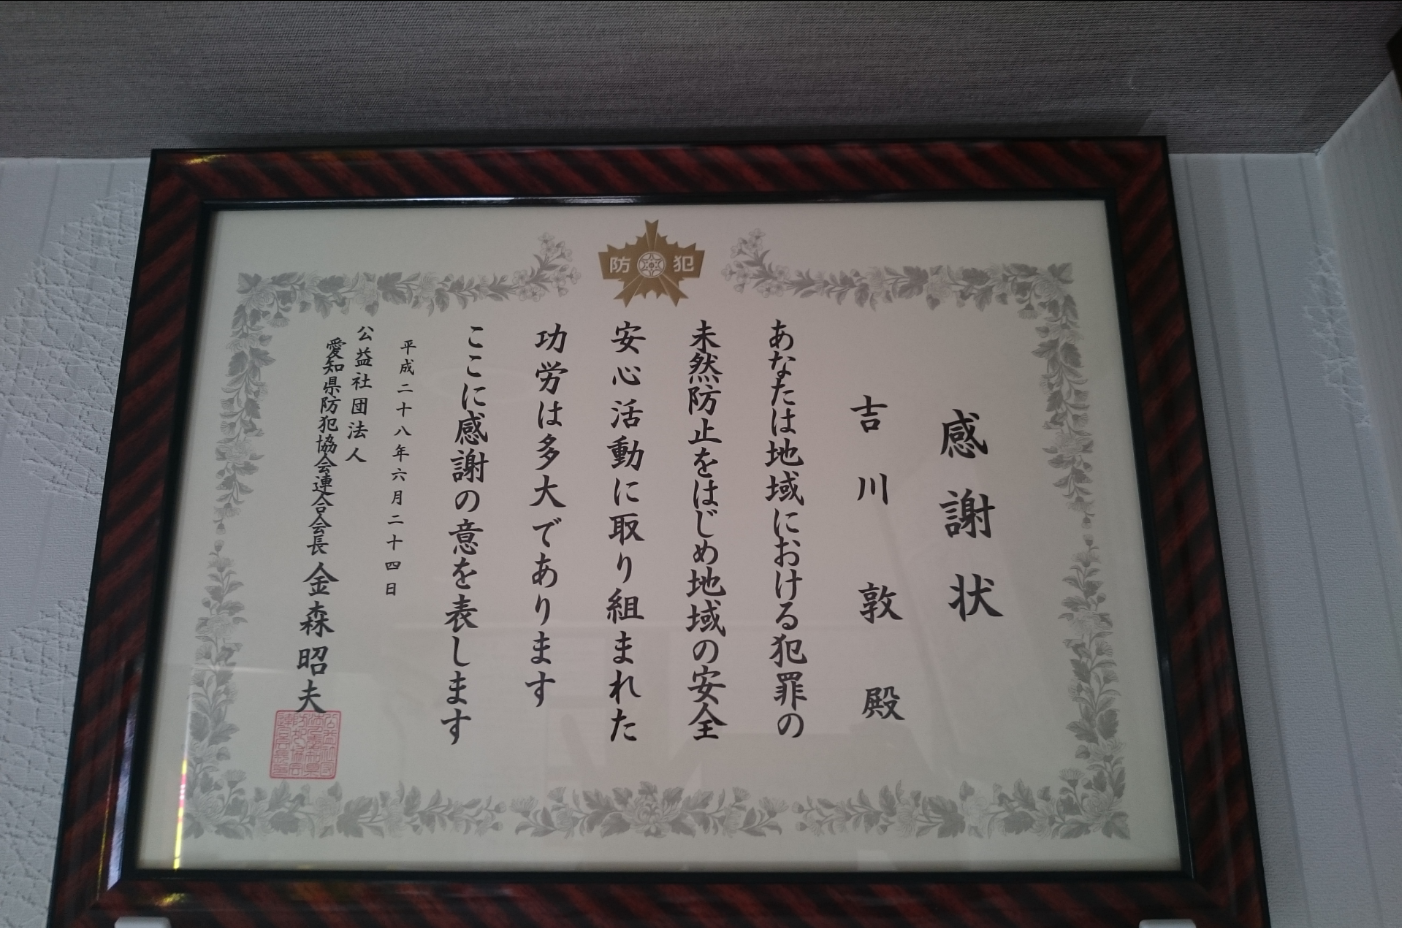 防犯
感謝状
吉川 敦 殿
あなたは地域における犯罪の
未然防止をはじめ地域の安全
安心活動に取り組まれた
功労は多大であります
ここに感謝の意を表します
平成二十八年六月二十四日
公益社団法人
愛知県防犯協会連合会長 金森昭夫